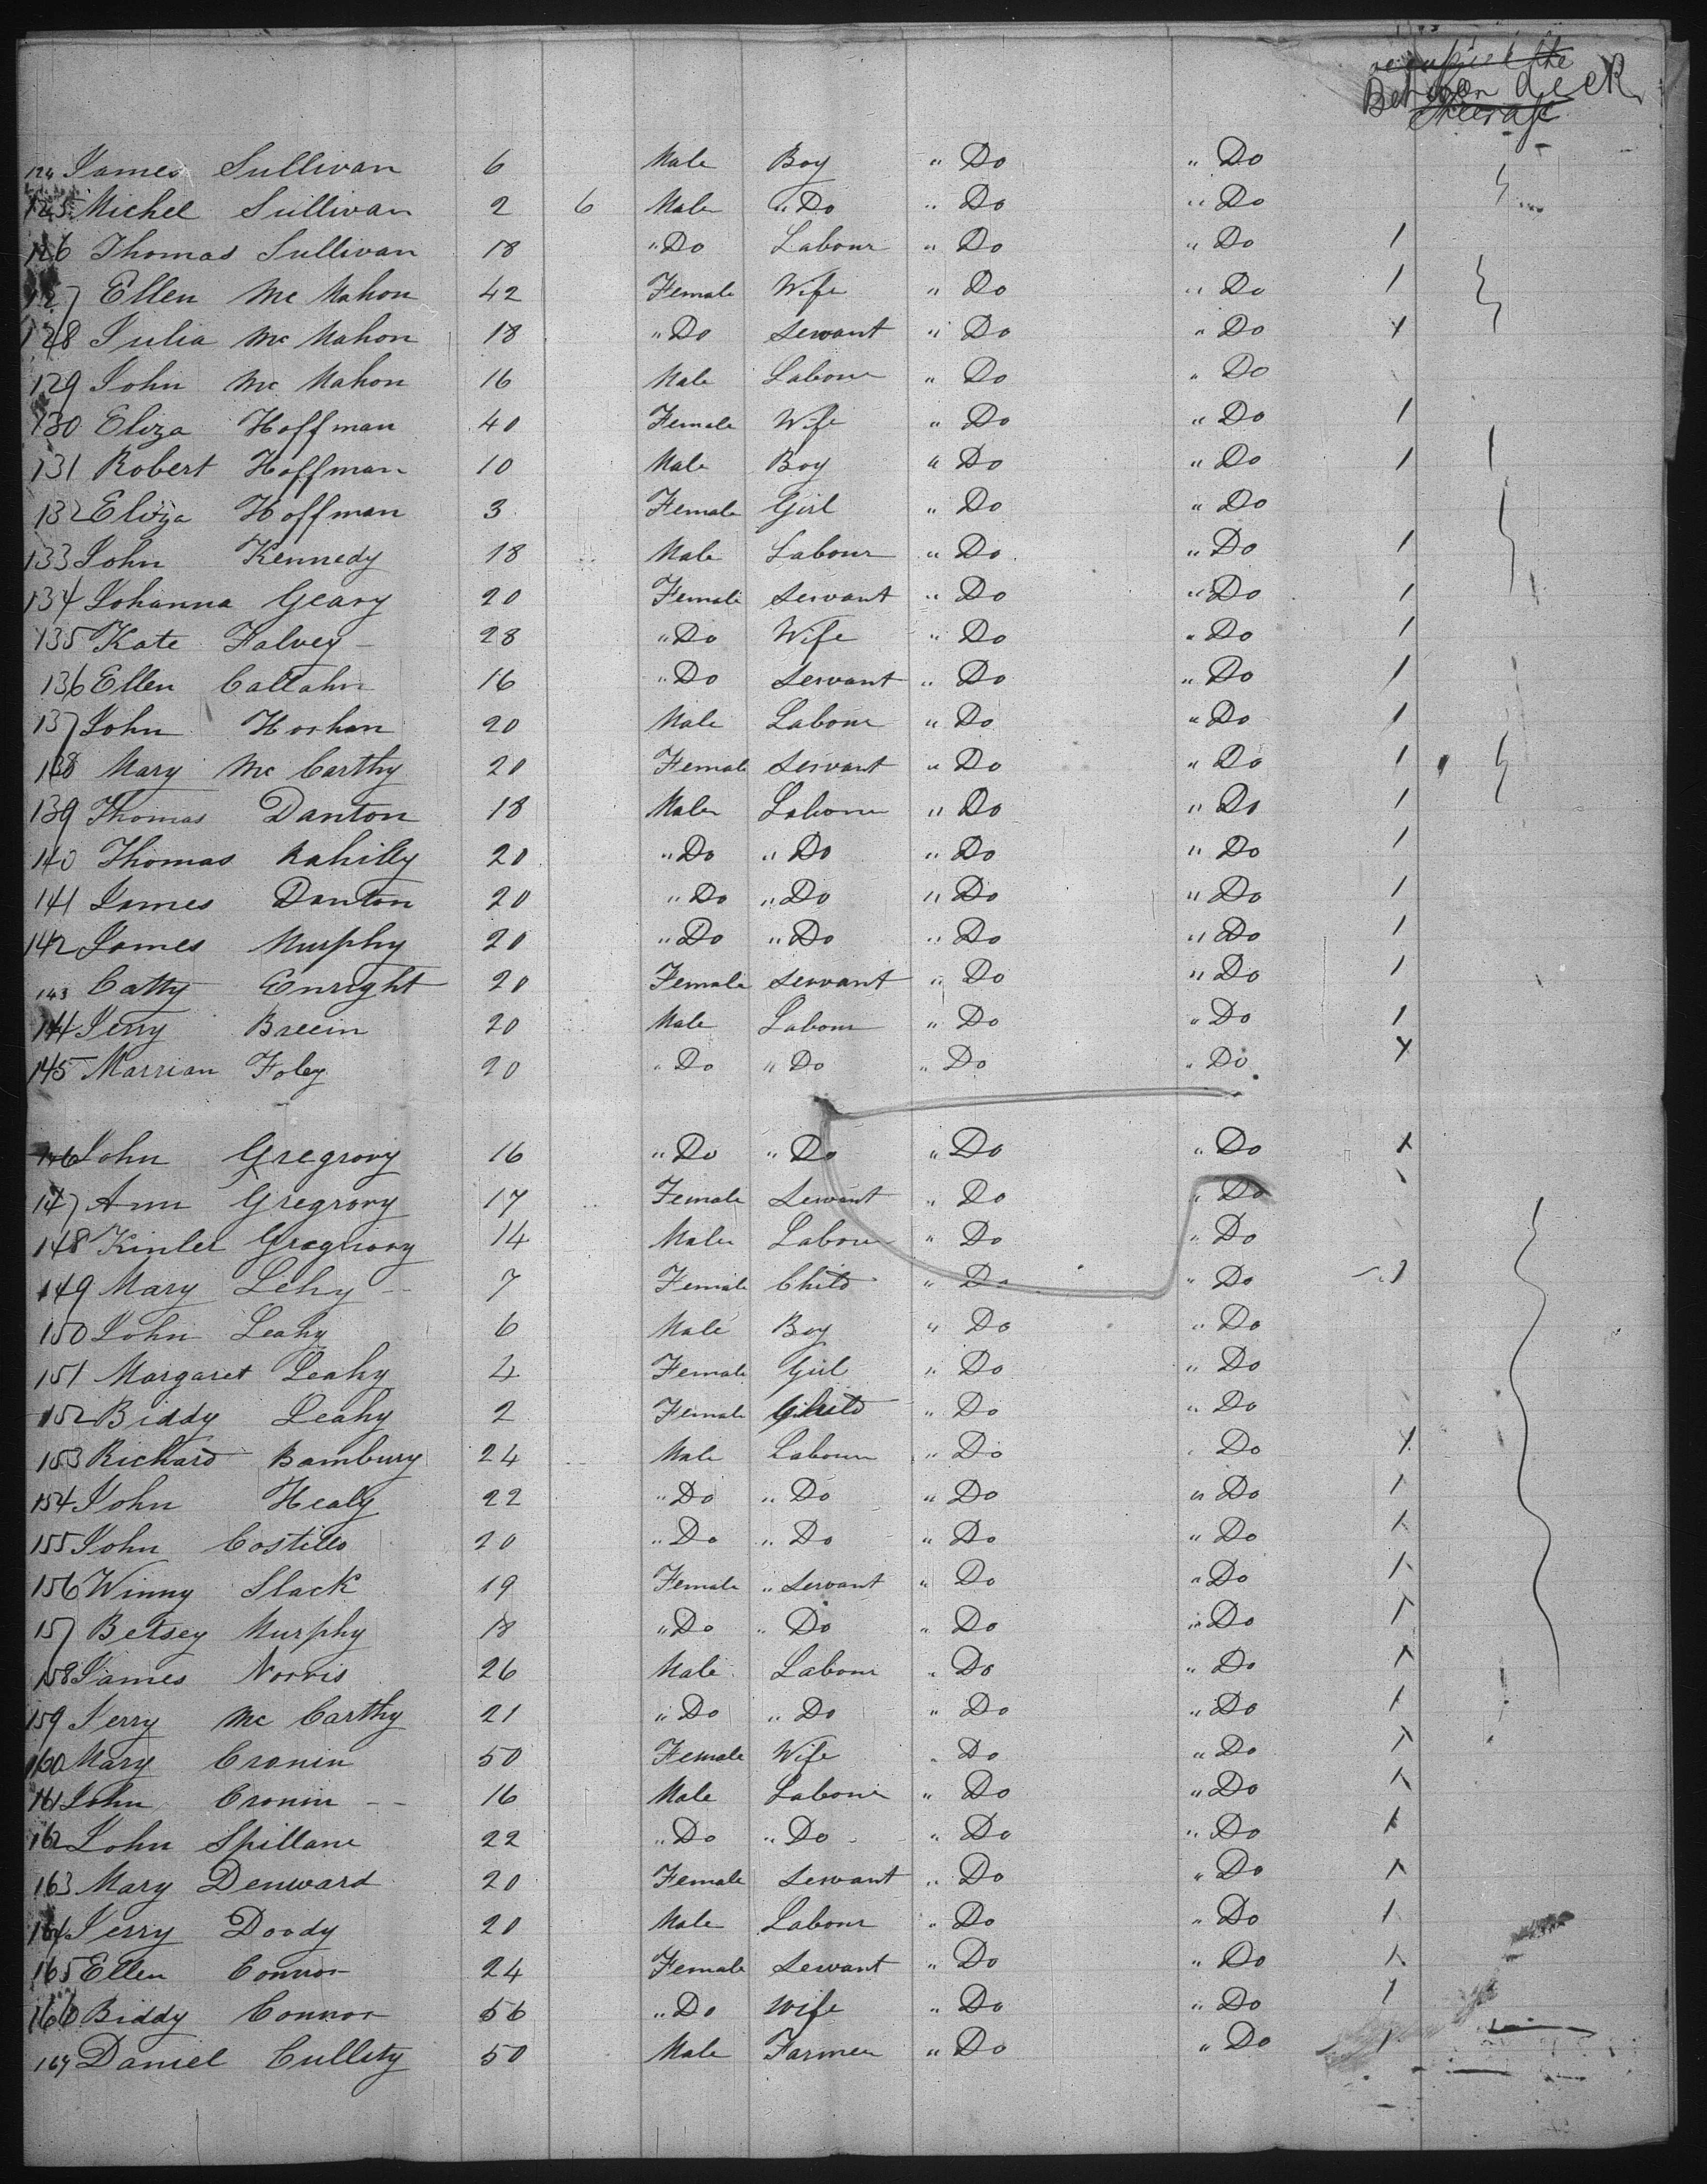 occupied the
Between deck
Steerage
124 James Sullivan 6 Male Boy " Do " Do
125 Michel Sullivan 2 6 Male " Do " Do " Do
126 Thomas Sullivan 18 " Do Labour " Do " Do 1
127 Ellen Mc Mahon 42 Female Wife " Do " Do 1
128 Julia Mc Mahon 18 " Do Servant " Do " Do 1
129 John Mc Mahon 16 Male Labour " Do " Do
130 Eliza Hoffman 40 Female Wife " Do " Do 1
131 Robert Hoffman 10 Male Boy " Do " Do 1 1
132 Eliza Hoffman 3 Female Girl " Do " Do
133 John Kennedy 18 Male Labour " Do " Do 1
134 Johanna Geary 20 Female Servant " Do " Do 1
135 Kate Falvey 28 " Do Wife " Do " Do 1
136 Ellen Callahn 16 " Do Servant " Do " Do 1
137 John Horhan 20 Male Labour " Do " Do 1
138 Mary Mc Carthy 20 Female Servant " Do " Do 1
139 Thomas Danton 18 Male Labour " Do " Do 1
140 Thomas Rahilly 20 " Do " Do " Do " Do 1
141 James Danton 20 " Do " Do " Do " Do 1
142 James Murphy 20 " Do " Do " Do " Do 1
143 Catty Enright 20 Female Servant " Do " Do 1
144 Jerry Breein 20 Male Labour " Do " Do 1
145 Marrian Foley 20 " Do " Do " Do " Do 1
146 John Gregrory 16 " Do " Do " Do " Do 1
147 Ann Gregrory 17 Female Servant " Do " Do 1
148 Kinler Gregrory 14 Male Labour " Do " Do
149 Mary Lehy 7 Female Child " Do " Do 1
150 John Leahy 6 Male Boy " Do " Do
151 Margaret Leahy 4 Female Girl " Do " Do
152 Biddy Leahy 2 Female Child " Do " Do
153 Richard Bambury 24 Male Labour " Do " Do 1
154 John Healy 22 " Do " Do " Do " Do 1
155 John Costillo 20 " Do " Do " Do " Do 1
156 Winny Slack 19 Female " Servant " Do " Do 1
157 Betsey Murphy 18 " Do " Do " Do " Do 1
158 James Norris 26 Male Labour " Do " Do 1
159 Jerry Mc Carthy 21 " Do " Do " Do " Do 1
160 Mary Cronin 50 Female Wife " Do " Do 1
161 John Cronin 16 Male Labour " Do " Do 1
162 John Spillane 22 " Do " Do " Do " Do 1
163 Mary Denward 20 Female Servant " Do " Do 1
164 Jerry Doody 20 Male Labour " Do " Do 1
165 Ellen Connor 24 Female Servant " Do " Do 1
166 Biddy Connor 56 " Do Wife " Do " Do 1
167 Daniel Cullity 50 Male Farmer " Do " Do 1